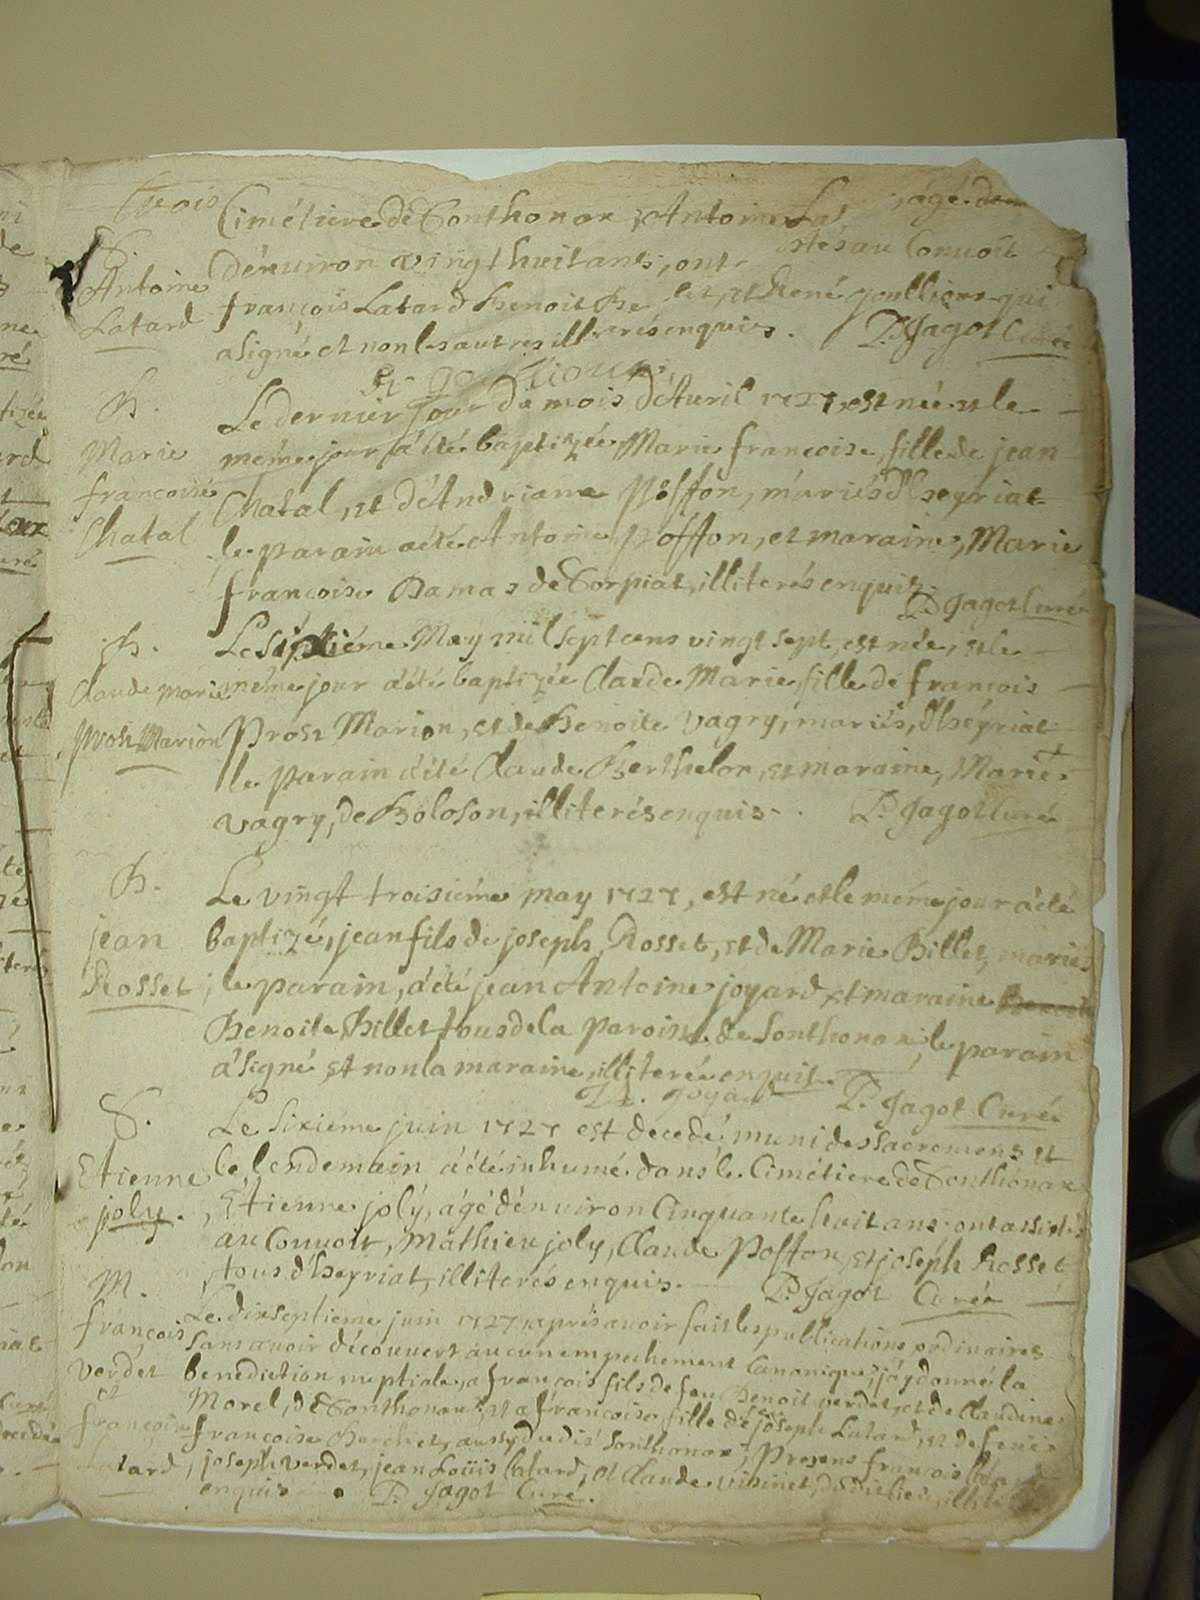 trois
Cimétiere de Sonthonax, Antoine La , agé
S.
Antoine
Latard
dénuiron vingt huit ans, ont stés au Convoit
françois Latard Benoit Be let, et René goullioux qui
a signé et non les autres illiterés enquis. P. Jagot Curé
R. goullioux
B.
Marie
françoise
Chatal
Le dernier jour du mois d'Auril 1727, est née et le
méme jour a été baptizée Marie françoise, fille de jean
Chatal, et d'Andriane Poffon, mariés d'heyriat
le parain a été Antoine Poffon, et maraine, Marie
françoise Damas de Corpiat, illiterés enquis. P. Jagot Curé
B.
Claude Marie
Prost Marion
Le séptiéme May mil sept cens vingt sept, est née, et le
méme jour a été baptizée Claude Marie, fille de françois
Prost Marion, et de Benoite Vagry, mariés, d'héyriat
le parain a été Claude Berthelon, et maraine, Marie
Vagry, de Boloson, illiterés enquis. P. Jagot Curé
B.
jean
Rosset
Le vingt troisiéme may 1727, est né et le méme jour a été
baptizé, jean fils de joseph Rosset, et de Marie Billet, mariés
; le parain, a été jean Antoine joyard et maraine
Benoite Billet tous de la paroisse de Sonthonax, le parain
a signé et non la maraine, illiterée enquise.
J. A. joyard P. Jagot Curé
S.
Etienne
joly.
Le Sixiéme juin 1727 est decedé muni des Sacremens et
le lendemain a été inhumé dans le Cimétiere de Sonthonax
, Etienne joly, agé dénuiron Cinquante huit ans. ont assistés
au Conuoit, Mathieu joly, Claude Poffon, et joséph Rosset
tous d'heyriat, illiterés enquis. P. Jagot Curé
M.
françois
verdet
et
françoise
Latard
Le dixseptieme juin 1727, aprés auoir fait les publications ordinaires
sans auoir découuert aucun empechement Canonique, j'áy donné la
benediction nuptiale, a françois fils de feu Benoit verdet, et de Claudine
Morel, de Sonthonax, et a françoise, fille de joseph Latard, et de feüe
françoise Berchet, aussy dudit Sonthonax, Presens françois Latard
, joseph verdet, jean Loüis Latard, et Claude
enquis. P. Jagot Curé.